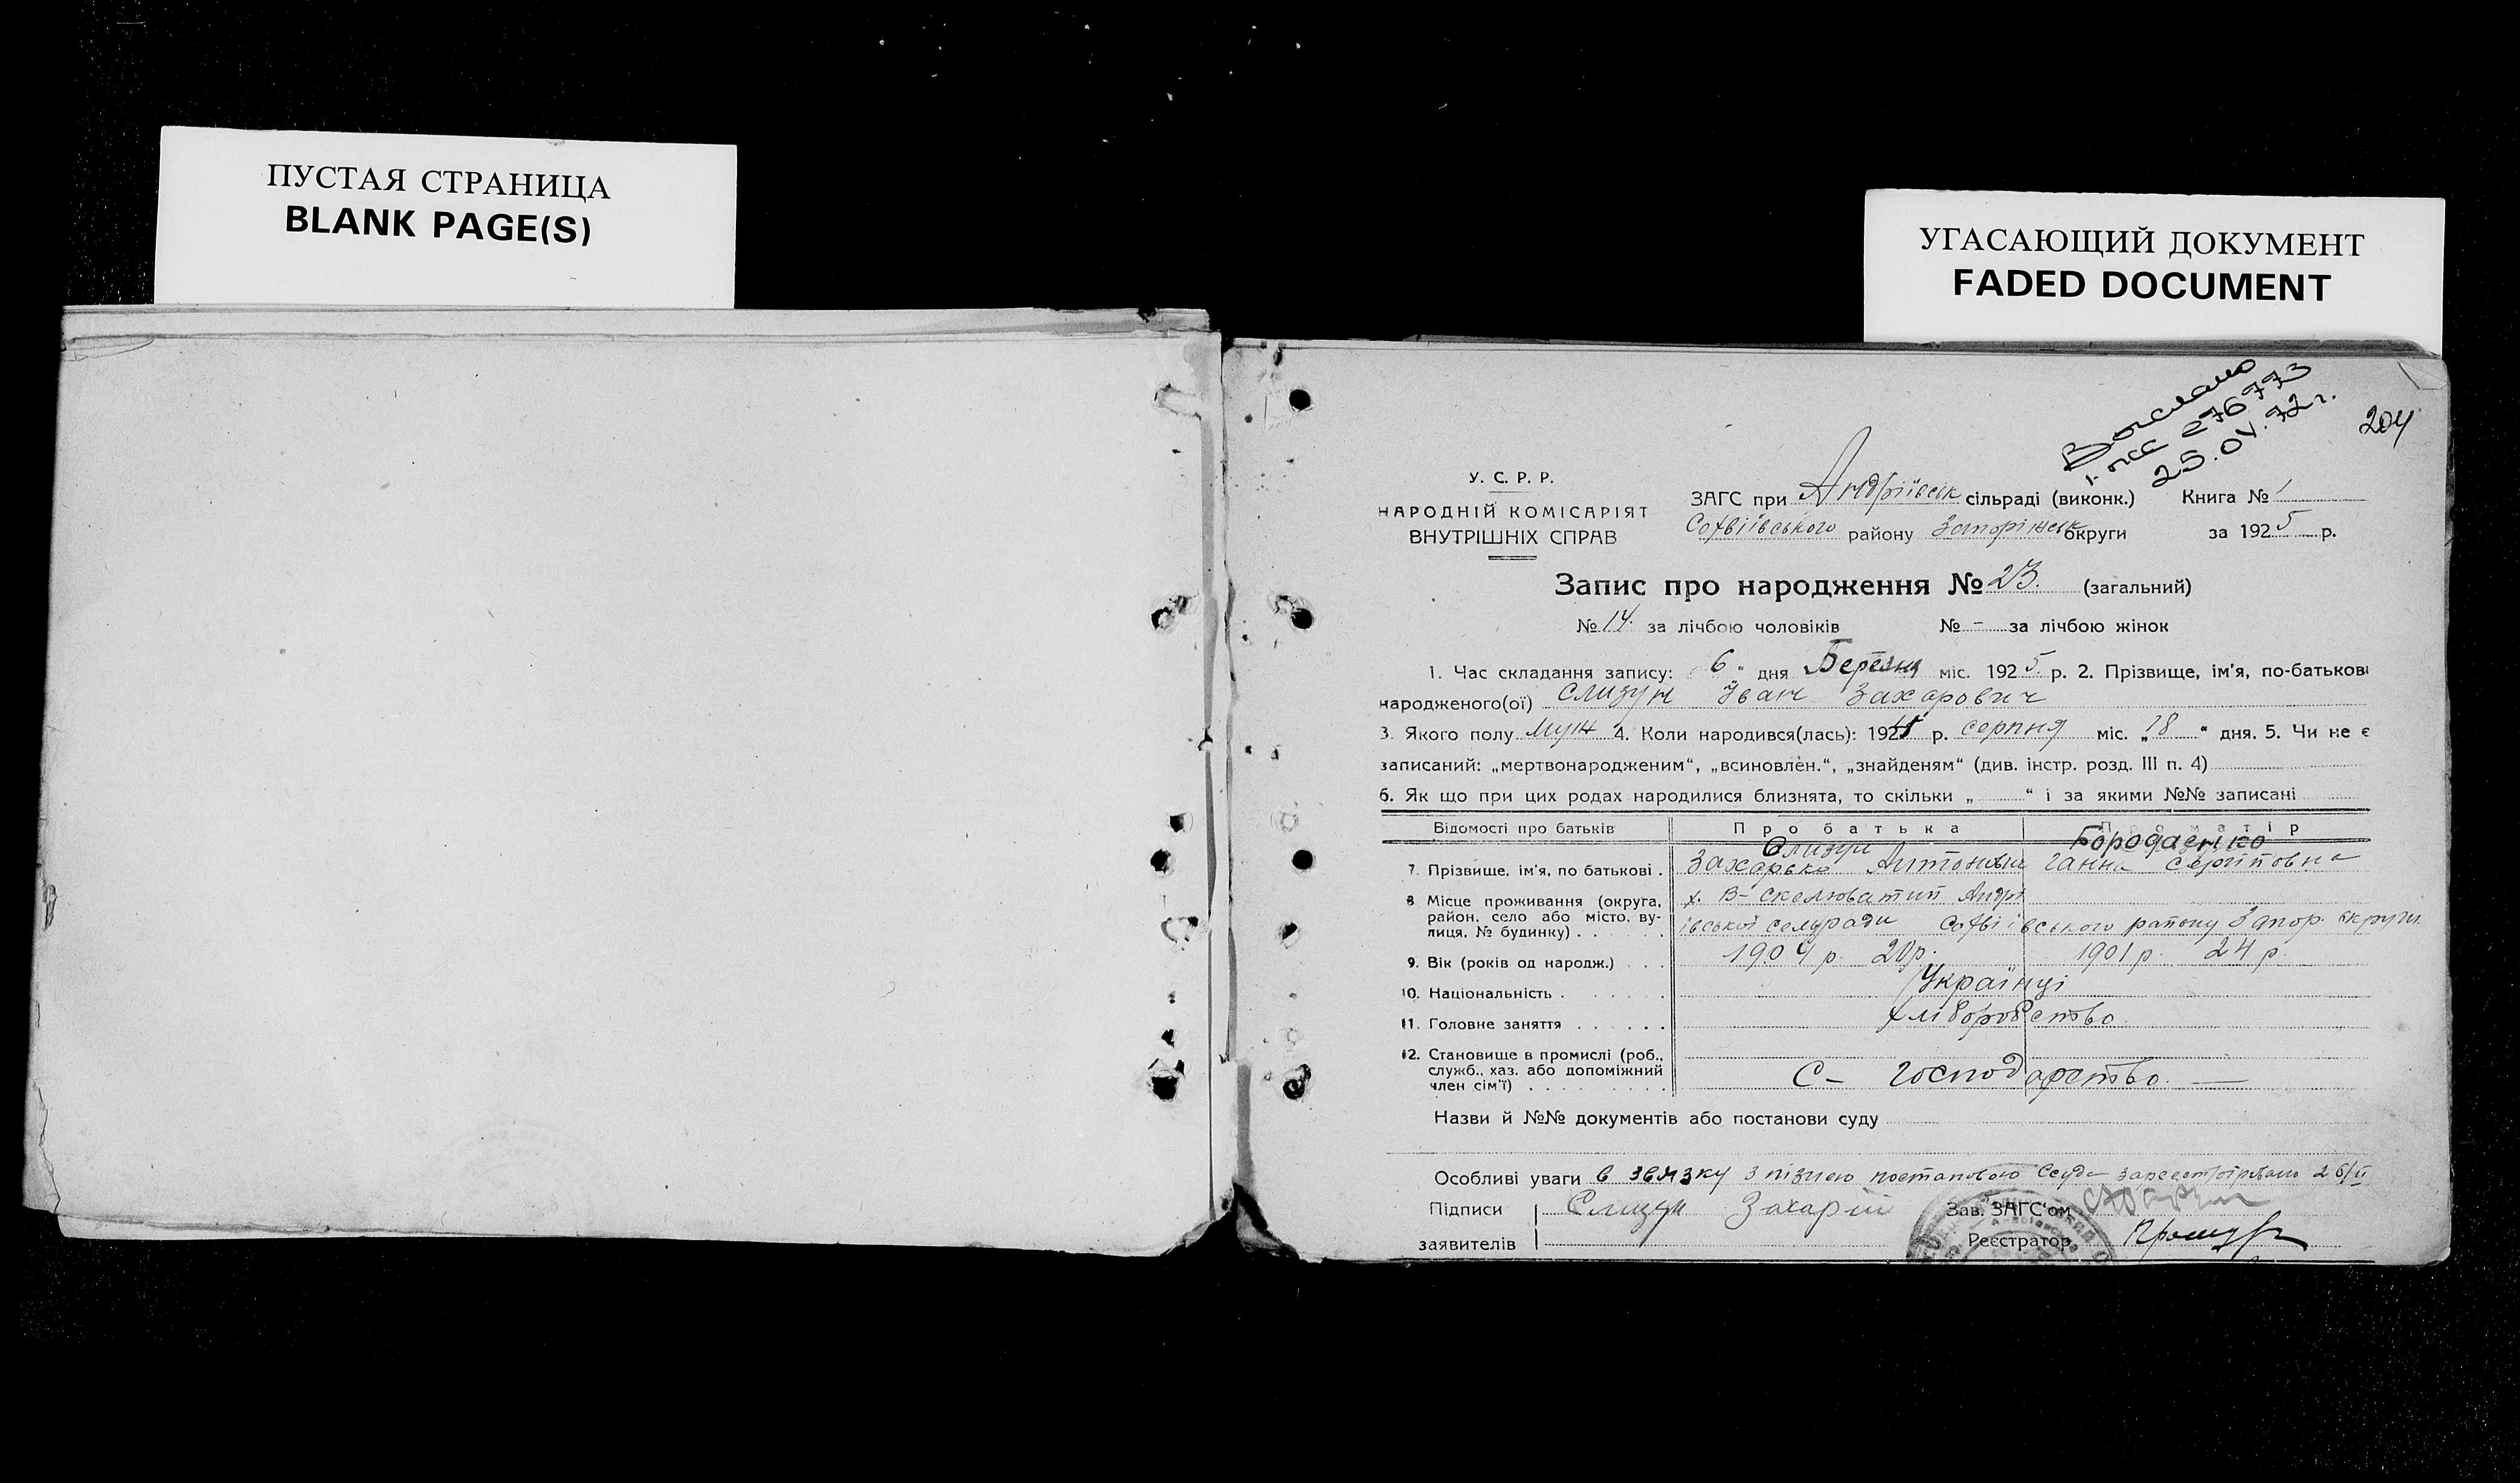 ПУСТАЯ СТРАНИЦА
BLANK PAGE(S)
УГАСАЮЩИЙ ДОКУМЕНТ
FADED DOCUMENT
Выслано
25.04.72 г.
204
У. С. Р. Р.
НАРОДНІЙ КОМІСАРІЯТ
ВНУТРІШНІХ СПРАВ
ЗАГС при Андріївськ сільраді (виконк.) Книга № 1
Софіївського району Запоріжськ округи за 1925 р.
Запис про народження № 23. (загальний)
№ 14. за лічбою чоловіків № - за лічбою жінок
1. Час складання запису: 6 " дня Березня міс. 1925 р. 2. Прізвище, ім'я, по-батькові
народженого(ої) Слизун Іван Захарович
3. Якого полу муж 4. Коли народився(лась): 192 р. серпня міс. „18" дня. 5. Чи не є
записаний: „мертвонародженим“, „всиновлен.“, „знайденям“ (див. інстр. розд. III п. 4)
6. Як що при цих родах народилися близнята, то скільки „ “ і за якими №№ записані
Відомості про батьків Про батька Про матір
7. Прізвище, ім'я, по батькові . Слизун Захарько Антонович Бородаенко Ганна Сергіївна
8 Місце проживання (округа, х. В- Скелюватий Андрі
район, село або місто, ву- івської сельради Софіївського району Запор. округи
лиця, № будинку) . . . . .
9. Вік (років од народж.) . . . 1904 р. 20 р. 1901 р. 24 р.
10. Національність . . . . . Українці
11. Головне заняття . . . . . . хліборобство
12. Становище в промислі (роб.,
служб., хаз. або допоміжний С- господарство. —
член сім'ї) . . . . . . . . .
Назви й №№ документів або постанови суду
Особливі уваги в звязку з пізнею постановою зареєстрірвано 26/II
Підписи Слизун Захарій Зав. ЗАГС'ом
заявителів Реєстратор